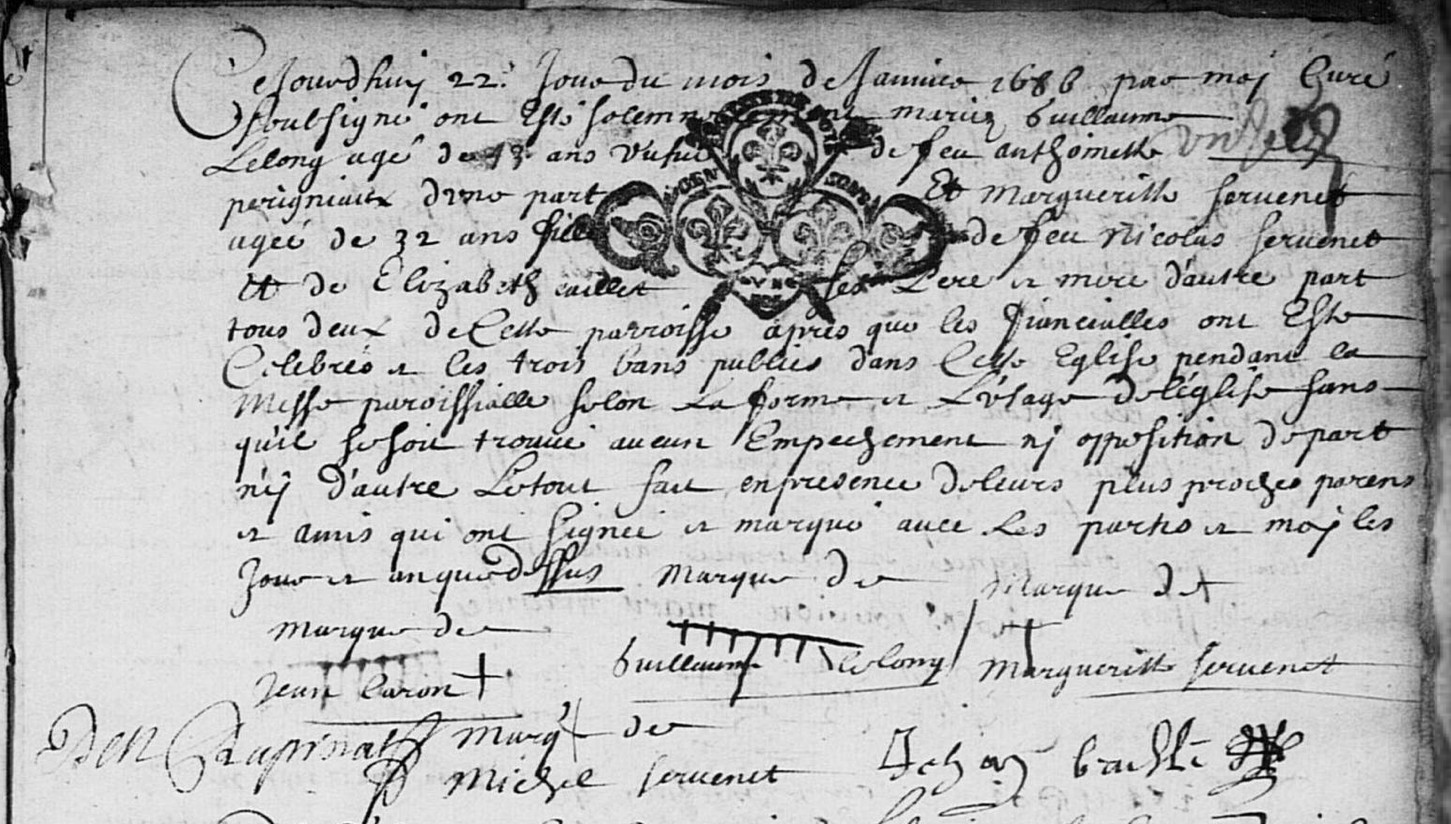 Cejourdhuij 22e Jour du mois de Janvier 1686 par moj Curé
soubsigné ont Esté solemnelement mariez Guillaume
Lelong agé de 43 ans vufue de feu anthoinette
perigniaux d'vne part Et Margueritte seruenet
ageé de 32 ans fille de feu Nicolas seruenet
et de Elizabeth caillet ses Pere et mere d'autre part
tous deux de Cette parroisse apres que les fiancialles ont Esté
Celebrés et les trois bans publiés dans Cette Eglise pendant la
Messe paroissialle selon La forme et L'vsage de l'église sans
qu'il se soit trouué aucun Empeschement nj opposition de part
nij d'autre Le tout fait en presence de leurs plus proches parens
et amis qui ont signée et marqué auec Les parties et moj les
Jour et an que dessus Marque de Marque de
marque de
Guillaume lelong Margueritte seruenet
Jean Caron
Rapinat marq de
Michel seruenet Jehan